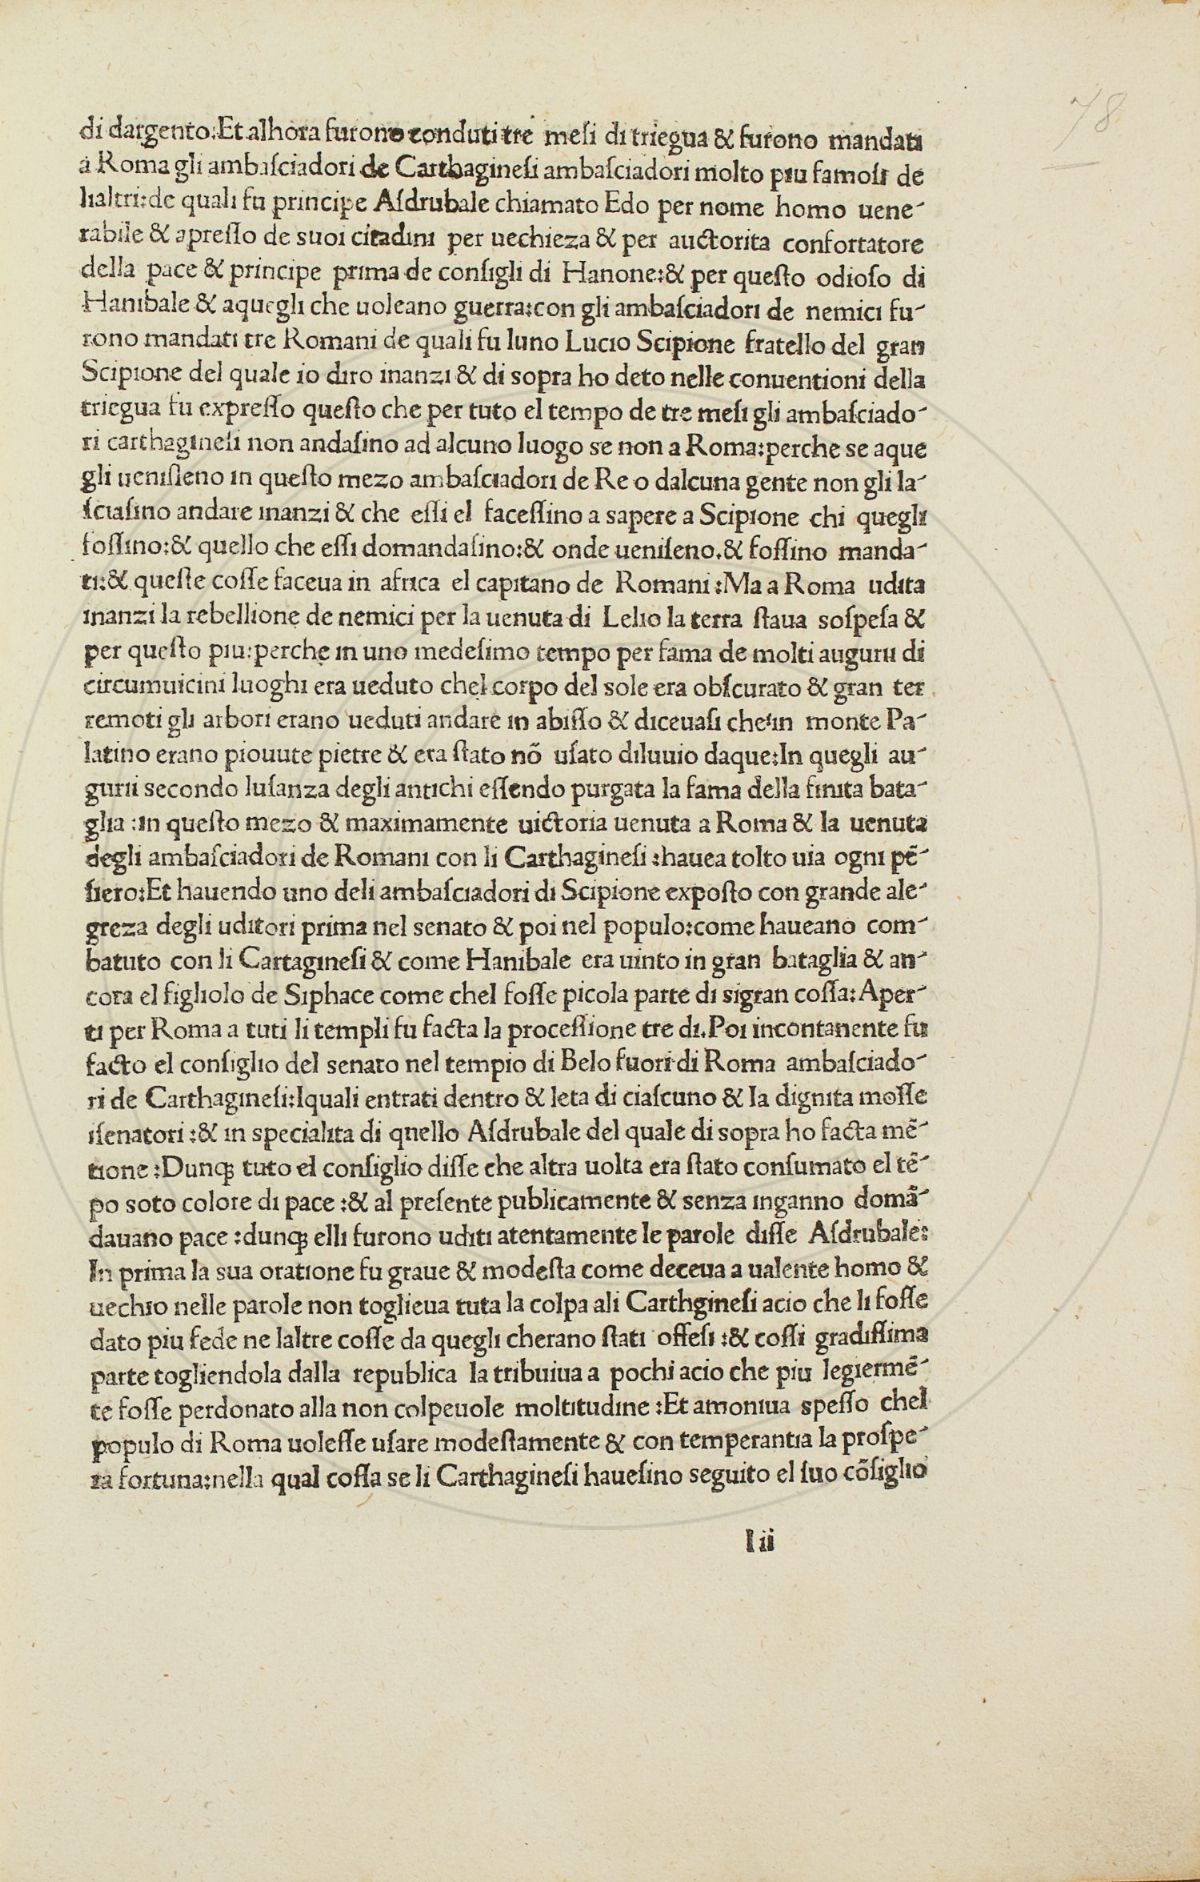 78
di dargento:Et alhora furono conduti tre mesi di triegua & furono mandati
a Roma gli ambasciadori de Carthaginesi ambasciadori molto piu famosi de
lialtri:de quali fu principe Asdrubale chiamato Edo per nome homo uene-
rabile & apresso de suoi citadini per uechieza & per auctorita confortatore
della pace & principe prima de consigli di Hanone:& per questo odioso di
Hanibale & aquegli che uoleano guerra:con gli ambasciadori de nemici fu-
rono mandati tre Romani de quali fu luno Lucio Scipione fratello del gran
Scipione del quale io diro inanzi & di sopra ho deto nelle conuentioni della
triegua fu expresso questo che per tuto el tempo de tre mesi gli ambasciado-
ri carthaginesi non andasino ad alcuno luogo se non a Roma:perche se aque
gli uenisseno in questo mezo ambasciadori de Re o dalcuna gente non gli la-
sciasino andare inanzi & che essi el facessino a sapere a Scipione chi quegli
fossino:& quello che essi domandasino:& onde ueniseno.& fossino manda-
ti:& queste cosse faceua in africa el capitano de Romani:Ma a Roma udita
inanzi la rebellione de nemici per la uenuta di Lelio la terra staua sospesa &
per questo piu:perche in uno medesimo tempo per fama de molti augurii di
circumuicini luoghi era ueduto chel corpo del sole era obscurato & gran ter
remoti gli arbori erano ueduti andare in abisso & diceuasi che in monte Pa-
latino erano piouute pietre & era stato nō usato diluuio daque:In quegli au-
gurii secondo lusanza degli antichi essendo purgata la fama della finita bata-
glia:in questo mezo & maximamente uictoria uenuta a Roma & la uenuta
degli ambasciadori de Romani con li Carthaginesi:hauea tolto uia ogni pē-
siero:Et hauendo uno deli ambasciadori di Scipione exposto con grande ale-
greza degli uditori prima nel senato & poi nel populo:come haueano com-
batuto con li Cartaginesi & come Hanibale era uinto in gran bataglia & an-
cora el figliolo de Siphace come chel fosse picola parte di sigran cossa:Aper-
ti per Roma a tuti li templi fu facta la processione tre di.Poi incontanente fu
facto el consiglio del senato nel tempio di Belo fuori di Roma ambasciado-
ri de Carthaginesi:Iquali entrati dentro & leta di ciascuno & la dignita mosse
isenatori:& in specialita di qnello Asdrubale del quale di sopra ho facta mē-
tione:Dunqꝫ tuto el consiglio disse che altra uolta era stato consumato el tē-
po soto colore di pace:& al presente publicamente & senza inganno domā-
dauano pace:dunqꝫ elli furono uditi atentamente le parole disse Asdrubale:
In prima la sua oratione fu graue & modesta come deceua a ualente homo &
uechio nelle parole non toglieua tuta la colpa ali Carthginesi acio che li fosse
dato piu fede ne laltre cosse da quegli cherano stati offesi:& cossi gradissima
parte togliendola dalla republica la tribuiua a pochi acio che piu legiermē-
te fosse perdonato alla non colpeuole moltitudine:Et amoniua spesso chel
populo di Roma uolesse usare modestamente & con temperantia la prospe-
ra fortuna:nella qual cossa se li Carthaginesi hauesino seguito el suo cōsiglio
l ii